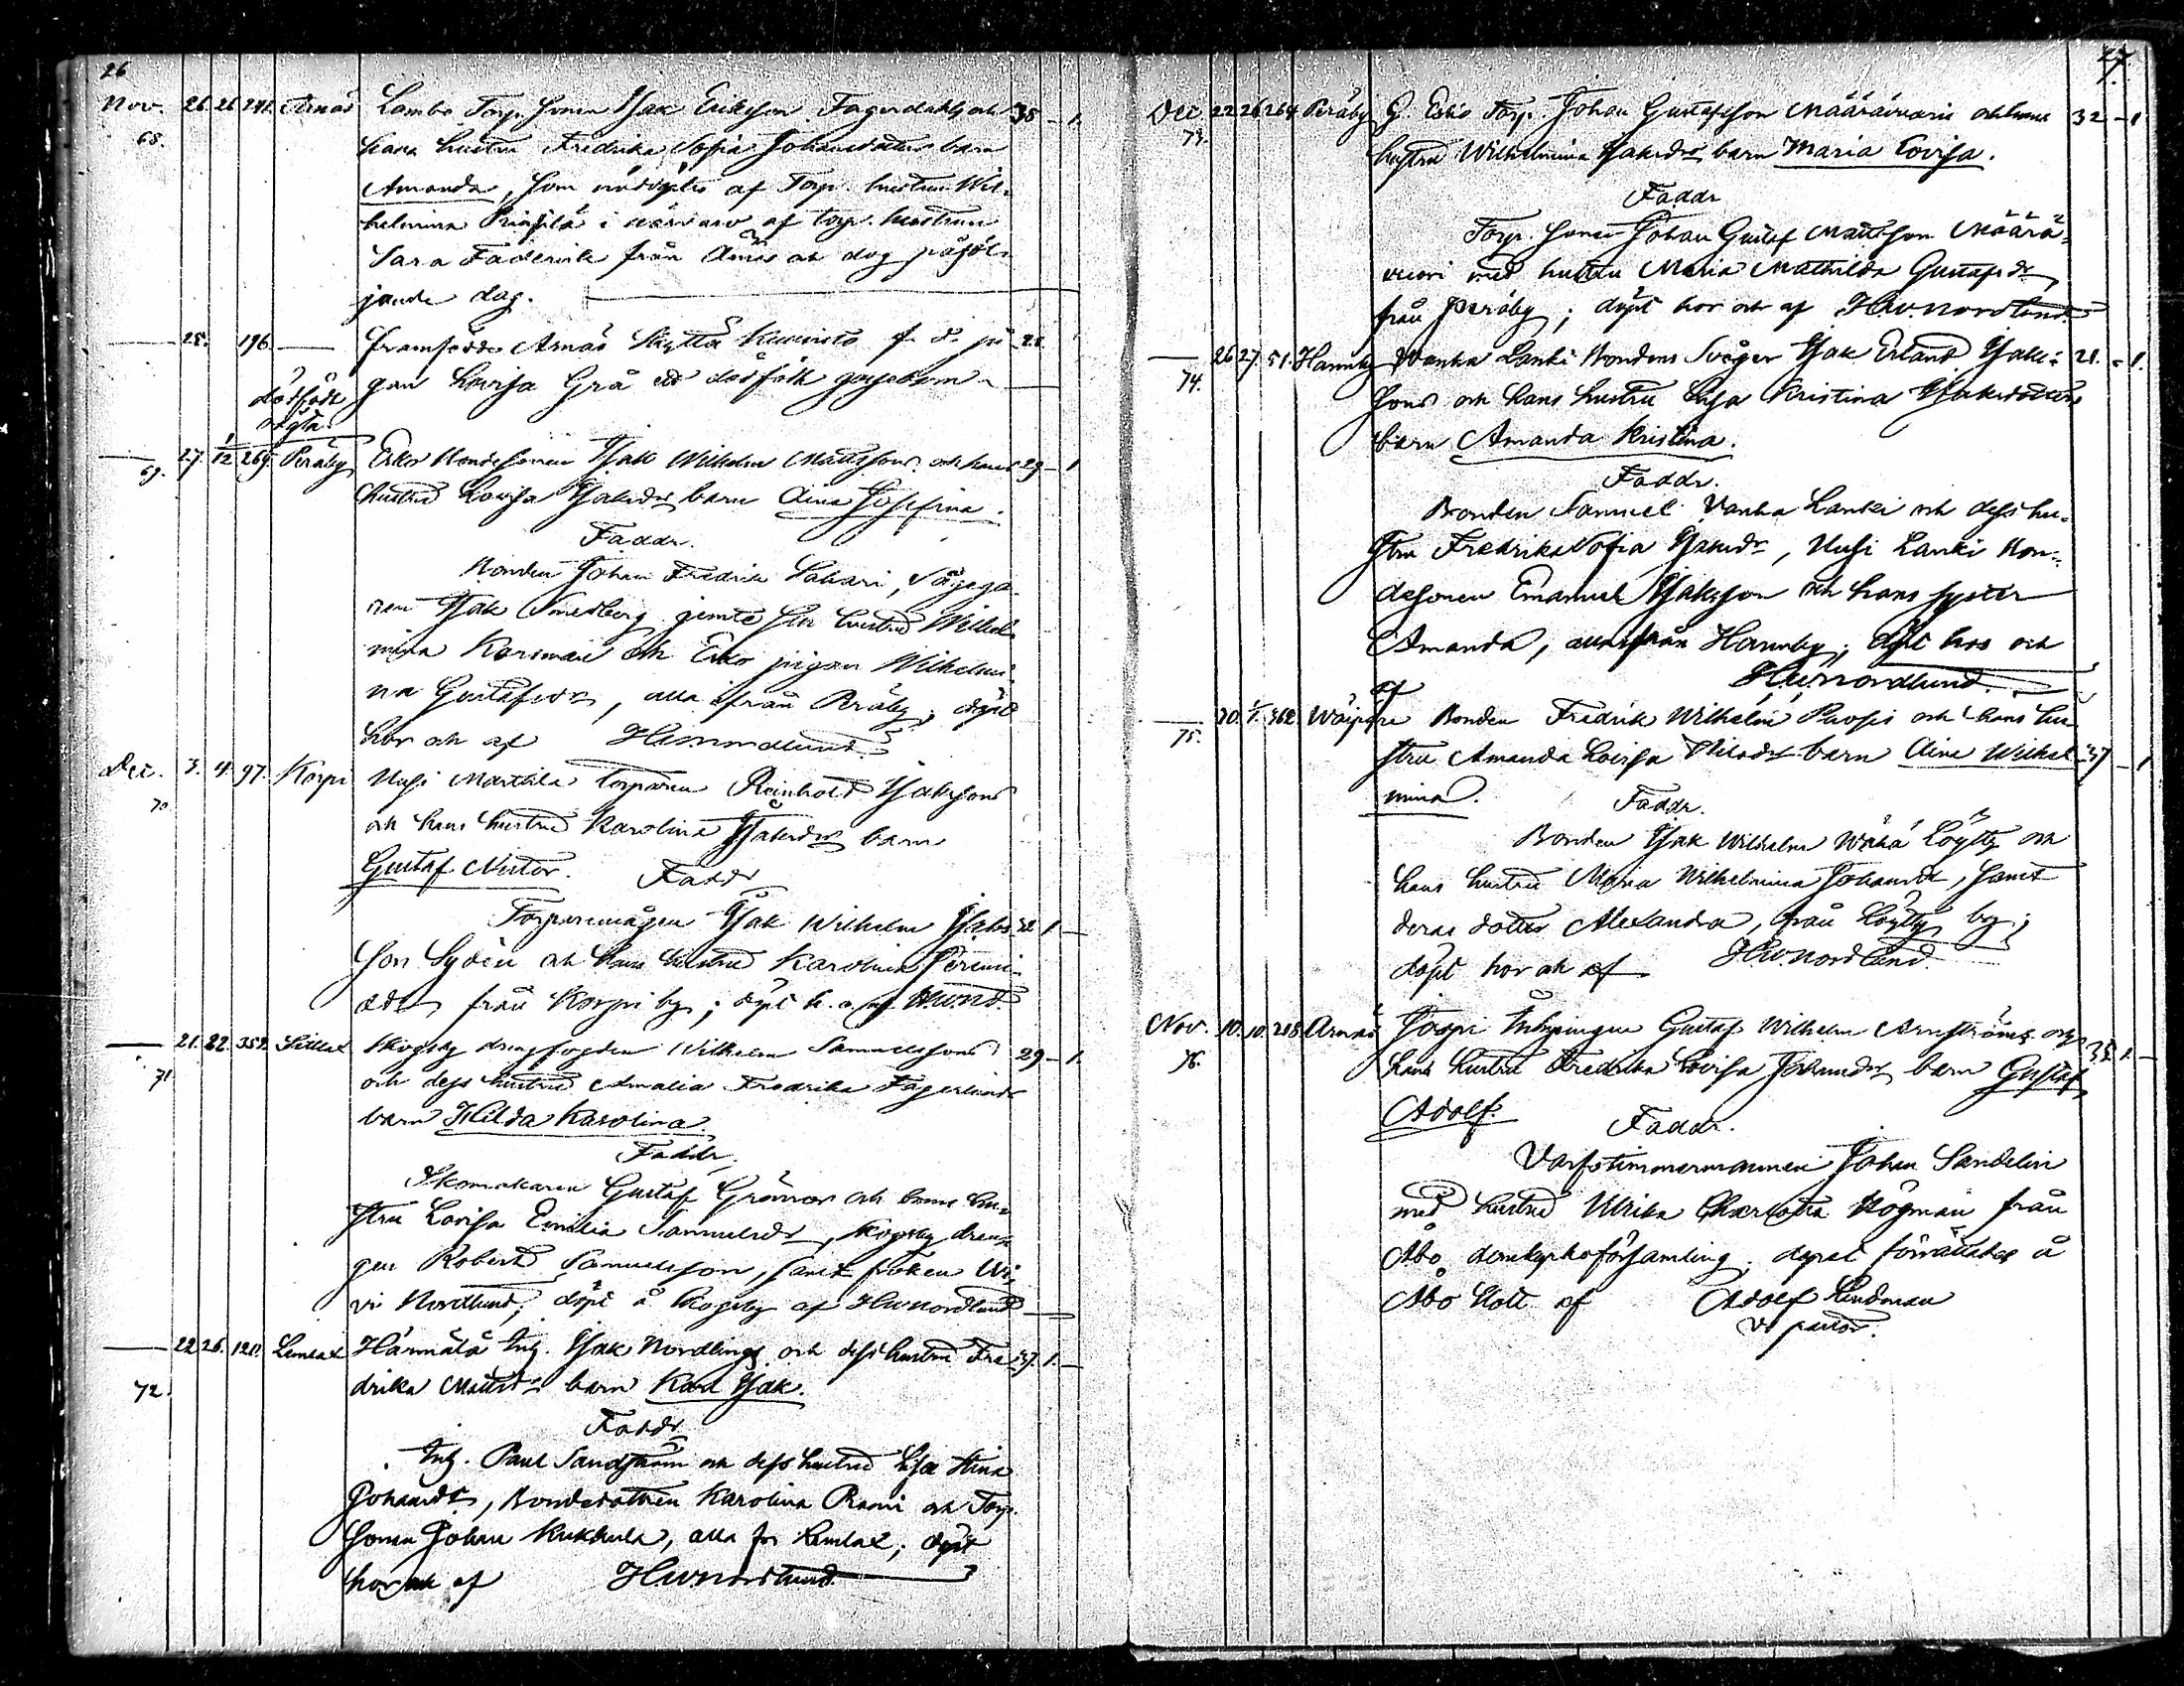 26
Nov. 26. 26. 291. Arnäs Lambo Torp. sonen Isak Eriksson Fagerdahls och 38 - 1.
68. hans hustru Fredrika Sofia Johansdotters barn
Amanda, som nöddöptes af Torp. hustrun Wil-
helmina i närvaro af torp. hustrun
Sara från Arnäs och dog påföl-
jande dag.
28. 196. framfödde Arnäs pi-
gan Lovisa Grå ett dödfödt gossebarn
dödfödt
oägta
69. 27. 1/12 269. Peräby Erko Bondesonen Isak Wilhelm Mattssons och hans 29 - 1
hustrus Lovisa Isaksdrs barn Aina Josefina.
Faddr.
Bonden Johan Fredrik Sakari, Sågega-
ren Isak Smedberg jemte sin hustru Wilhel-
mina och Erko pigan Wilhelmi-
na Gustafsdr, alla ifrån Peräby; döpt
hos och af HWNordlund
Dec. 3. 4. 97. Korpi Uusi Marttila Torparen Reinhold Isakssons
70. och hans hustrus Karolina Isaksdrs barn
Gustaf Nestor. Faddr
Torparemågen Isak Wilhelm Isaks- 32 1 -
son Sydän och hans hustru Karolina Jeremi-
ædr från Korpi by; döpt h. o. af HWNd
21. 22. 352. Sillax Skogsby drengfogden Wilhelm Samuelssons 29 - 1.
71. och dess hustrus Amalia Fredrika Fagerlunds
barn Hilda Karolina.
Faddr.
Skomakaren Gustaf Grönroos och hans hu-
stru Lovisa Emilia Samuelsdr, Skogsby dren-
gen Robert Samuelsson, samt fröken Wi-
vi Nordlund; döpt å Skogsby af HWNordlund
22 26. 121. Lemlax Härmälä Inh. Isak Nordlings och dess hustrus Fre- 37. 1. -
72. drika Mattsdrs barn Karl Isak.
Faddr
Inh. Paul Sandström och dess hustru Lisa Stina
Johansdr, Bondedottren Karolina Rasmi och Torp.
sonen Johan Kukkula, alla fr Lemlax; döpt
hos och af HWNordlund
27.
Dec 22 26 264 Peräby G. Eskis Torp. Johan Gustafsson Määrävuoris och hans 32 - 1
73. hustrus Wilhelmina Isaksdrs barn Maria Lovisa.
Faddr
Torp. sonen Johan Gustaf Mattsson Määrä-
vuori med hustru Maria Mathilda Gustafsdr
från Peräby; döpt hos och af HWNordlund
26 27. 51. Hannuby Vanha Lanki Bondens Svåger Isak Erland Isaks- 21. - 1.
74. sons och hans hustrus Lisa Kristina Isaksdotters
barn Amanda Kristina.
Faddr.
Bonden Samuel Vanha Lanki och dess hu-
stru Fredrika Sofia Isaksdr, Uusi Lanki Bon-
desonen Emanuel Isaksson och hans syster
Amanda, alla från Hannuby; döpt hos och
af HWNordlund.
30. 1/1. 362 Bonden Fredrik Wilhelm och hans hu-
75. strus Amanda Lovisa barn Aina Wilhel- 37 - 1
mina. Faddr.
Bonden Isak Wilhelm Wähä Löytty och
hans hustru Maria Wilhelmina Johansdr, samt
deras dotter Alexandra, från Löyttys by;
döpt hos och af HWNordlund.
Nov. 10. 10. 288 Arnäs Torpi Inhysingen Gustaf Wilhelm Arnströms och 35. 1. -
76. hans hustrus Fredrika Lovisa Johansdrs barn Gustaf
Adolf.
Faddr.
Varfstimmermannen Johan Sandelin
med hustru Ulrika Charlotta Högman från
Åbo domkyrkoförsamling; dopet förrättades å
Åbo Slott af Adolf Lindman
V pastor.